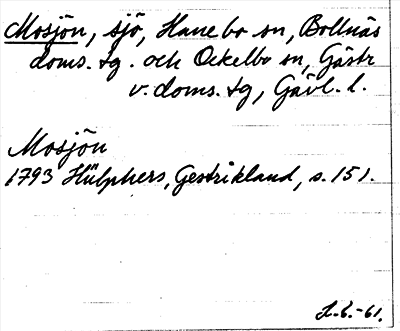 Mosjön, sjö, Hanebo sn, Bollnäs
doms. tg. och Ockelbo sn, Gästr
v. doms. tg, Gävl. l.
Mosjön
1793 Hülphers, Gestrikland, s. 151.
L.E.-61.